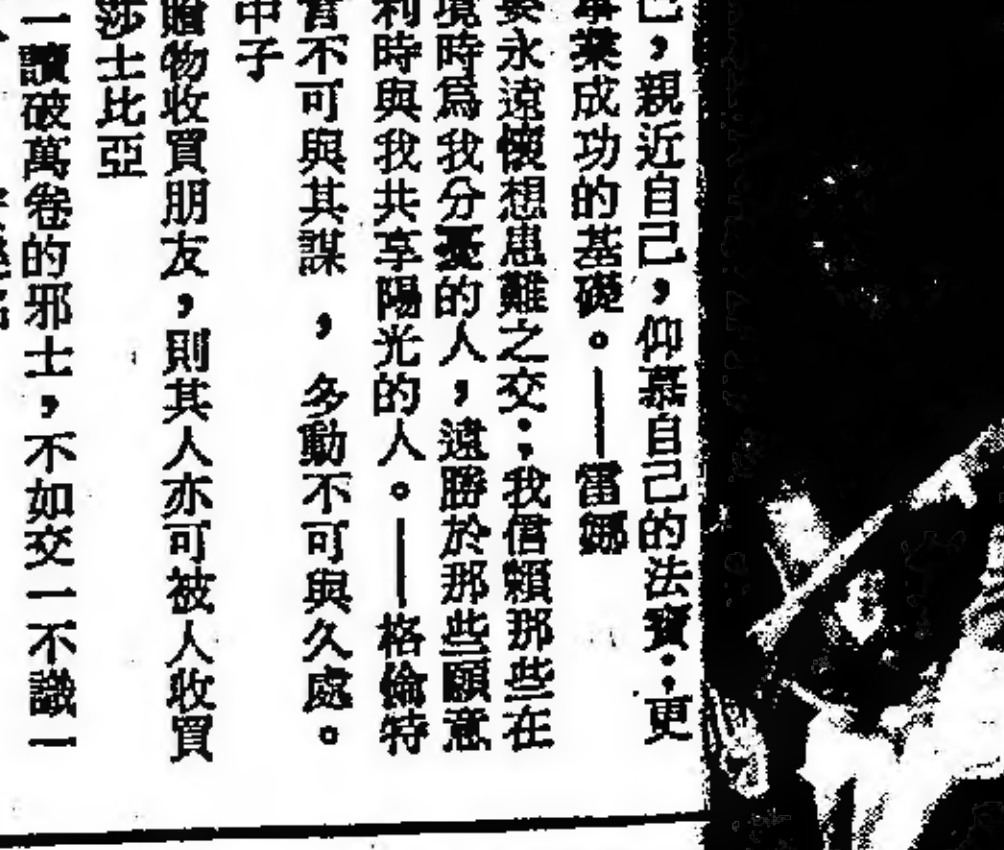 己，親近自己，仰慕自己的法寶；更
事業成功的基礎。——雷娜
要永遠懷想患難之交；我信賴那些在
境時爲我分憂的人，遠勝於那些願意
利時與我共享陽光的人。——格倫特
言不可與其謀，多動不可與久處。
中子
贈物收買朋友，則其人亦可被人收買
莎士比亞
一讀破萬卷的邪士，不如交一不識一